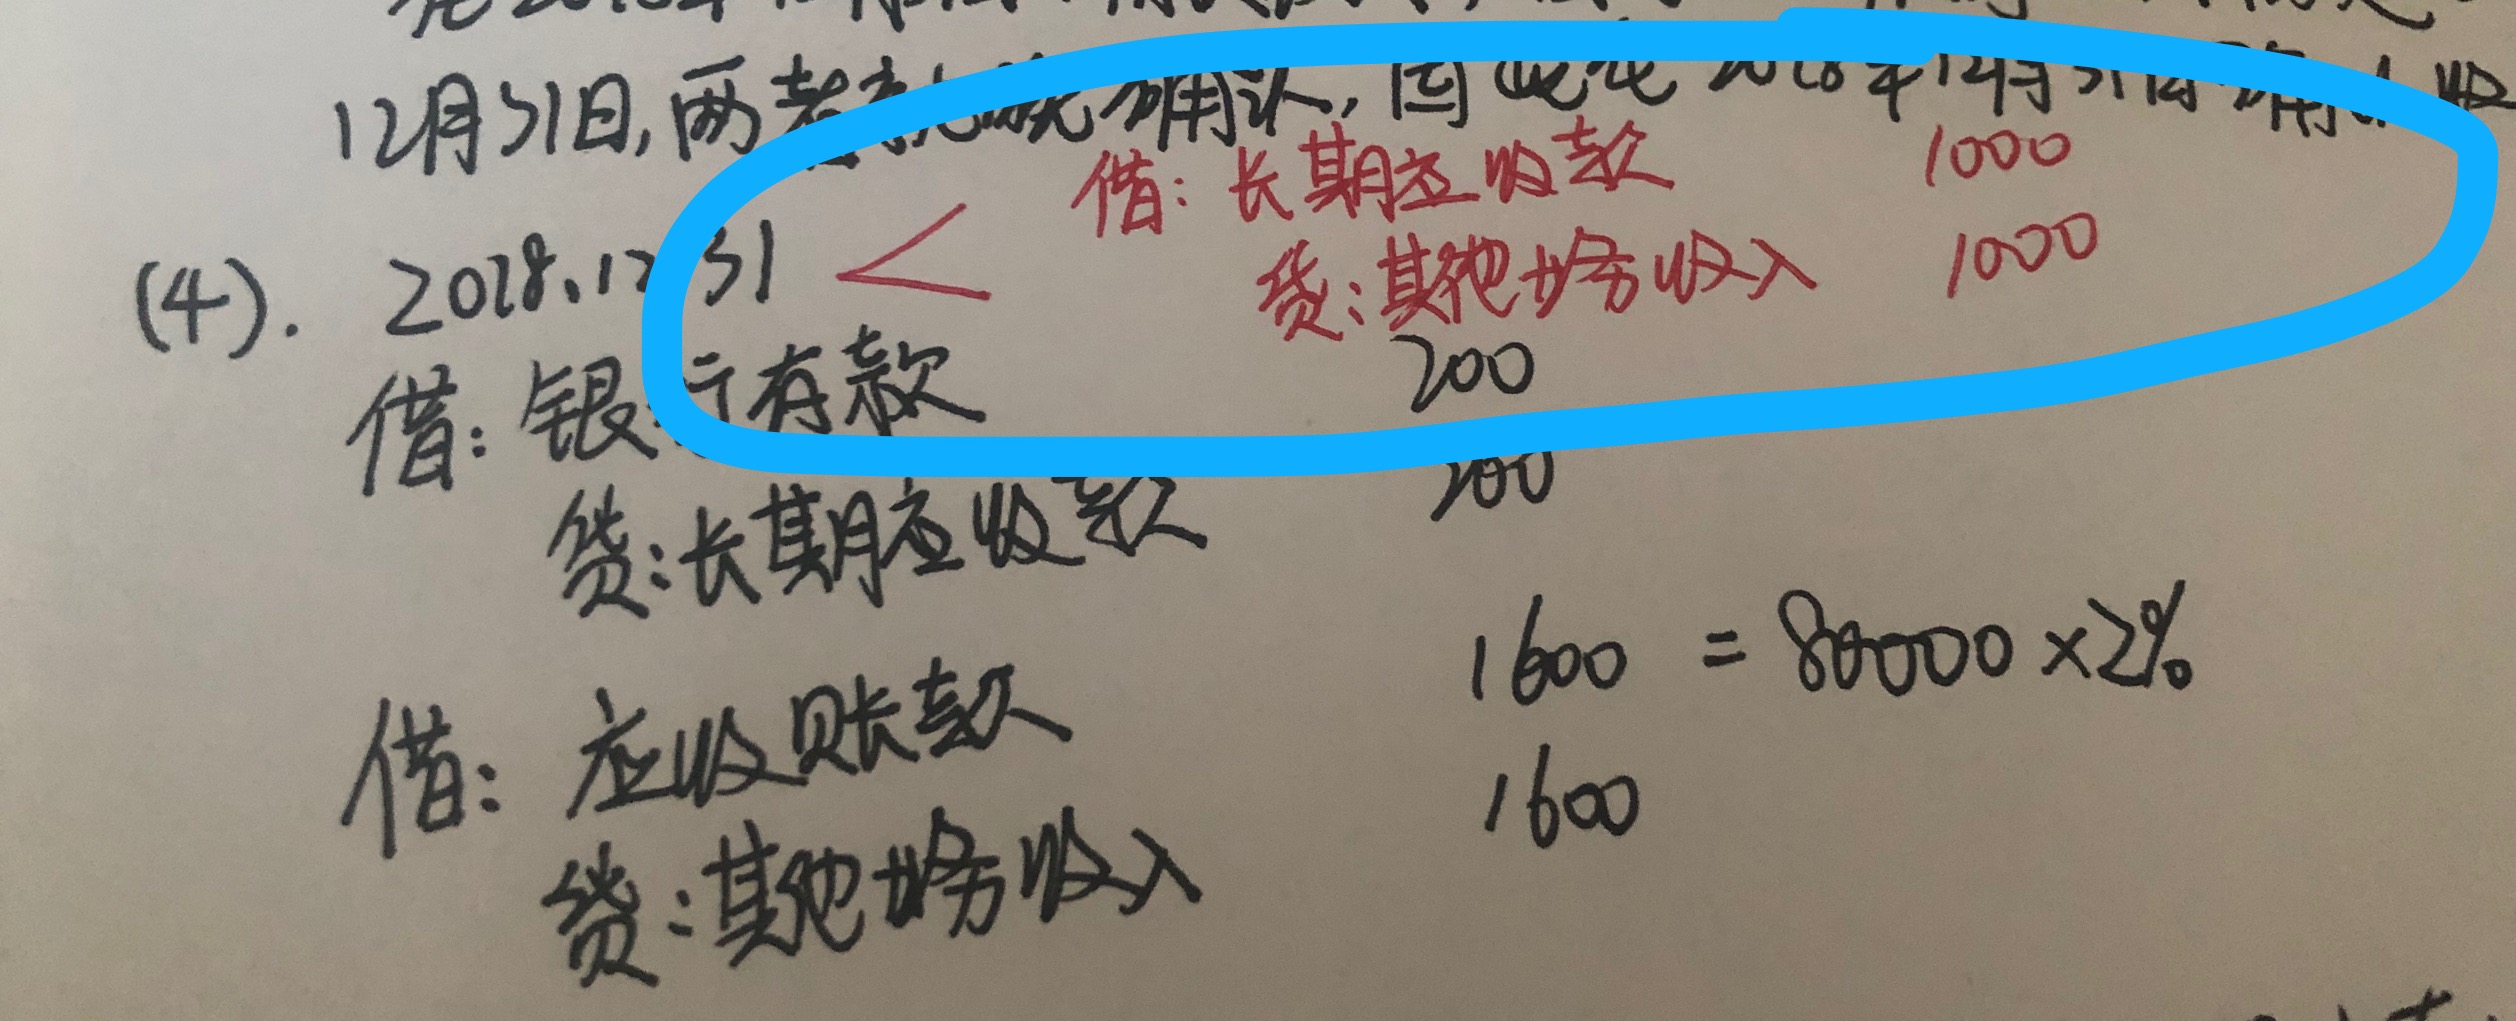 12月31日,两者孰晚确认,因此在2018年12月31日确认收
借:长期应收款 1000
贷:其他业务收入 1000
(4). 2018.12.31
借:银行存款 200
贷:长期应收款 200
借:应收账款 1600 = 80000×2%
贷:其他业务收入 1600